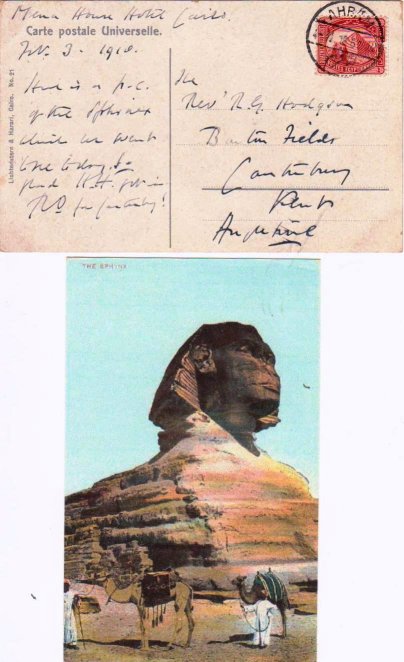 Mena House Hotel Cairo.
Carte postale Universelle.
Feb. 3 - 1910.
Here is a p.c.
of the Sphinx
which we went
to see today. So
glad H.H. got in
for Canterbury!
The
Rev. R.G. Hodgson
Fields
Canterbury
Kent
Lichtenstern & Harari, Cairo. No. 21
THE SPHINX